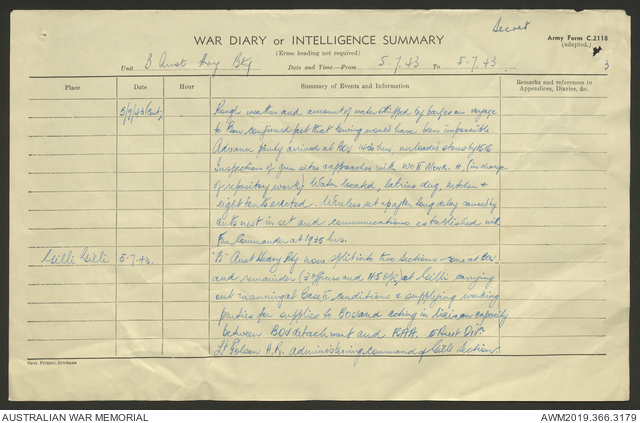 Secret
WAR DIARY or INTELLIGENCE SUMMARY
Army Form C.2118
(Erase heading not required)
(adapted.)
Unit B Aust Hvy Bty Date and Time—From 5.7.43 To 5.7.43
3
Place Date Hour Summary of Events and Information Remarks and references to Appendices, Diaries, &c.
5/7/43 Cont. Rough weather and amount of water shipped by barges on voyage
to Bou confirmed fact that towing would have been impossible.
Advance party arrived at BOU 1430 hrs, unloaded stores by 1515
Inspection of gun sites & approaches with WO II Mark. H. (in charge
of repository work). Water located, latrine dug, kitchen &
eight tents erected. Wireless set up after long delay caused by
ants nest in set and communications established with
Fire Commander at 1935 hrs.
Gilli Gilli 5.7.43. "B" Aust Heavy Bty now split into two sections - one at Bou
and remainder (3 officers and 45 O/R) at Gilli carrying
out manning at Case II conditions & supplying working
parties for supplies to Bou and acting in liaison capacity
between BOU detachment and RAA. 5 Aust Div.
Lt H.R. administering command of Gilli Section.
Govt. Printer, Brisbane
AUSTRALIAN WAR MEMORIAL
AWM2019.366.3179